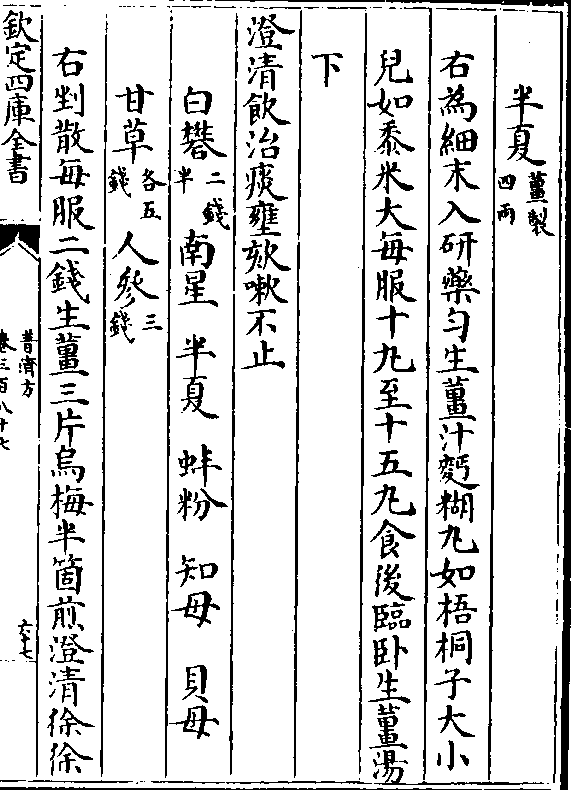 半夏薑製四兩
右為細末入研藥勻生薑汁麪糊九如梧桐子大小
兒如黍米大每服十九至十五九食後臨卧生薑湯
下
澄清飲治痰壅欬嗽不止
白礬二錢半 南星 半夏 蚌粉 知母 貝母
甘草各五錢 人參三錢
右剉散每服二錢生薑三片烏梅半箇煎澄清徐徐
欽定四庫全書
普濟方
卷三百八十七
六十七